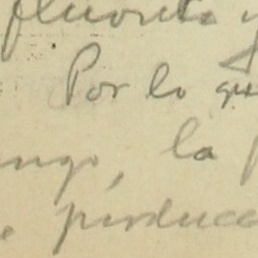 fluorita y
Por lo que
ngo, la
producc